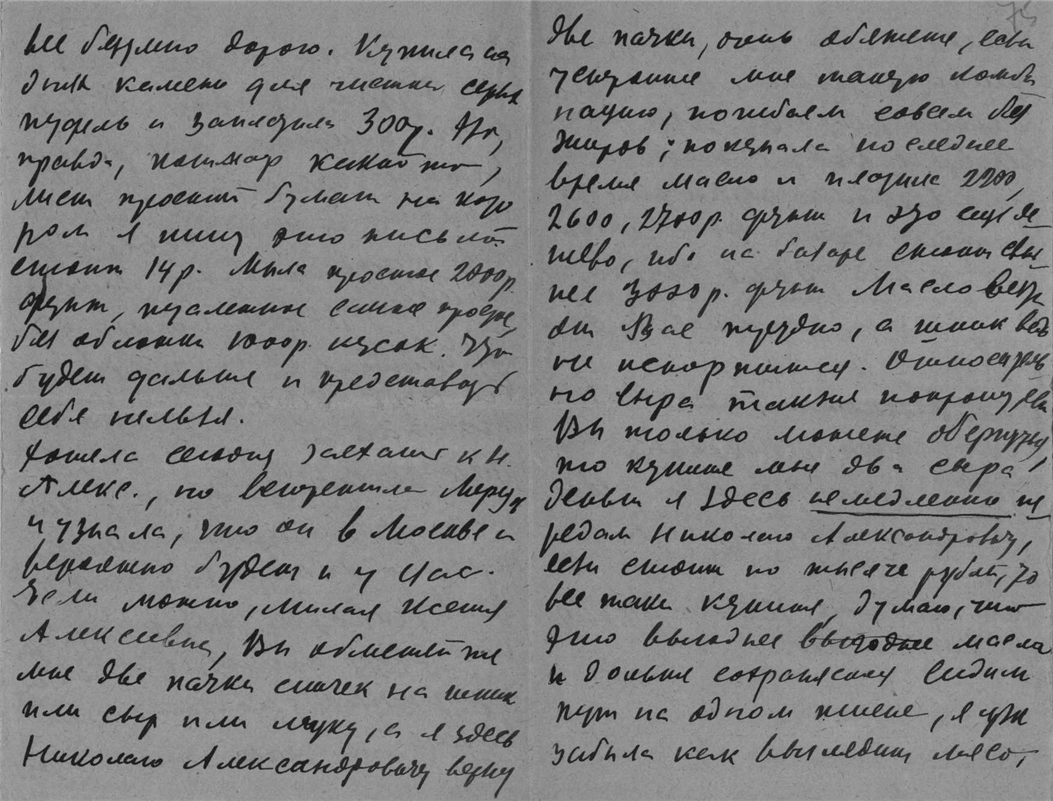 все безумно дорого. Купила на
днях камень для чистки
и заплатила 300р. Это,
правда, кошмар какой то,
лист простой бумаги на кото
ром я пишу это письмо
стоит 14р. Мыла простое 2000р.
фунт, туалетное самое
без обложки 1000р. кусок. Что
будет дальше и представить
себе нельзя.
Хотела сегодня заехать к Н.
Алекс., но встретила
и узнала, что он в Москве и
вероятно будет и у Вас.
Если можно, милая Ксения
Алексеевна, Вы обменяйте
мне две пачки спичек на шпик
или сыр или муку, а я здесь
Николаю Александровичу верну
75
две пачки, очень обяжете, если
устроите мне такую комби
нацию, погибаем совсем без
жиров; покупала последнее
время масло и платила 2200,
2600, 2700р. фунт и это еще де
шево, ибо на базаре стоит свы
ше 3000р. фунт. Масло везти
от Вас трудно, а шпик ведь
не испортится. Относитель
но сыра также попрошу, если
Вы только можете
то купите мне два сыра,
деньги я здесь немедленно пе
редам Николаю Александровичу,
если стоит по тысяче рублей, то
все таки купите, думаю, что
это выгоднее выгоднее масла
и дольше сохраняется. Сидим
тут на одном пшене, я уже
забыла как выглядит мясо,